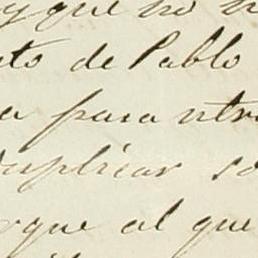 y que no
to de Pablo
a para otr
suplicar so
rque al que